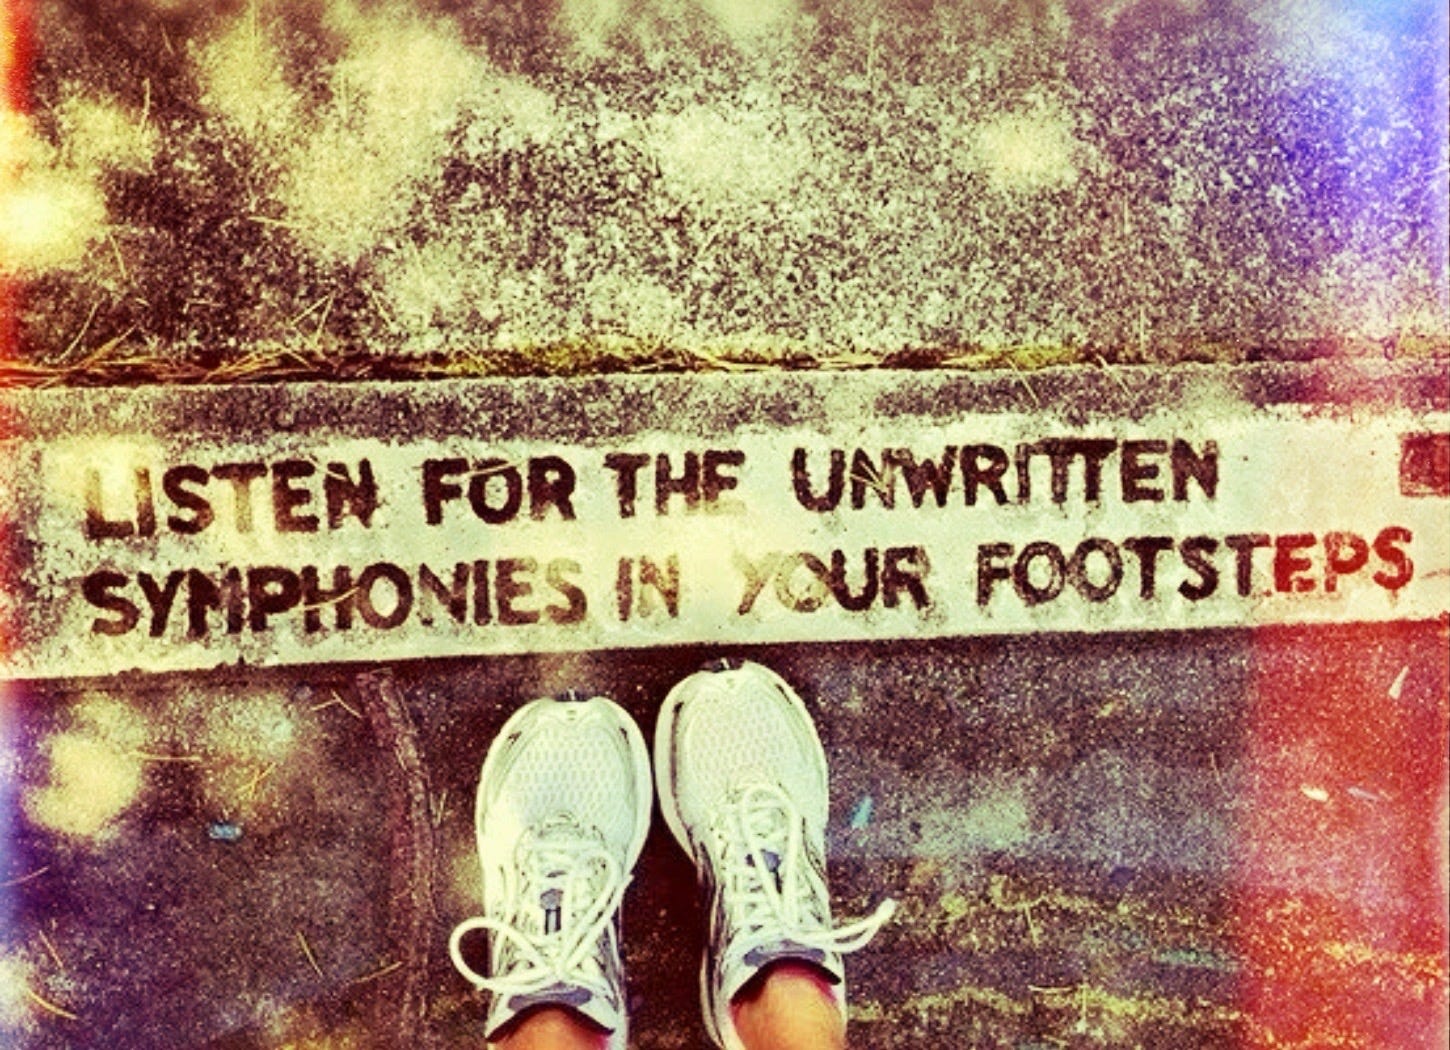 LISTEN FOR THE UNWRITTEN
SYMPHONIES IN YOUR FOOTSTEPS